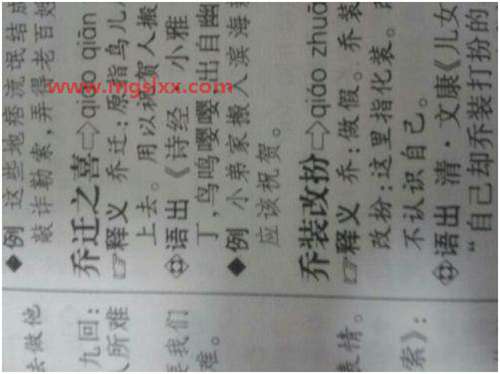 ◆例 这些地痞流氓结成
敲诈勒索，弄得老百姓
乔迁之喜⇨qiáo qiān
☞释义 乔迁：原指鸟儿
上去。用以祝贺人搬
语出《诗经·小雅
丁，鸟鸣嘤嘤。出自幽
◆例 小弟家搬入滨海
应该祝贺。
乔装改扮⇨qiáo zhuā
☞释义 乔：做假。乔装
改扮：这里指化装。
不认识自己。
语出 清·文康《儿女
“自己却乔装打扮的
去做他
九回：
人所难
要我们
难。
表情。
索》：
www.mgsixx.com